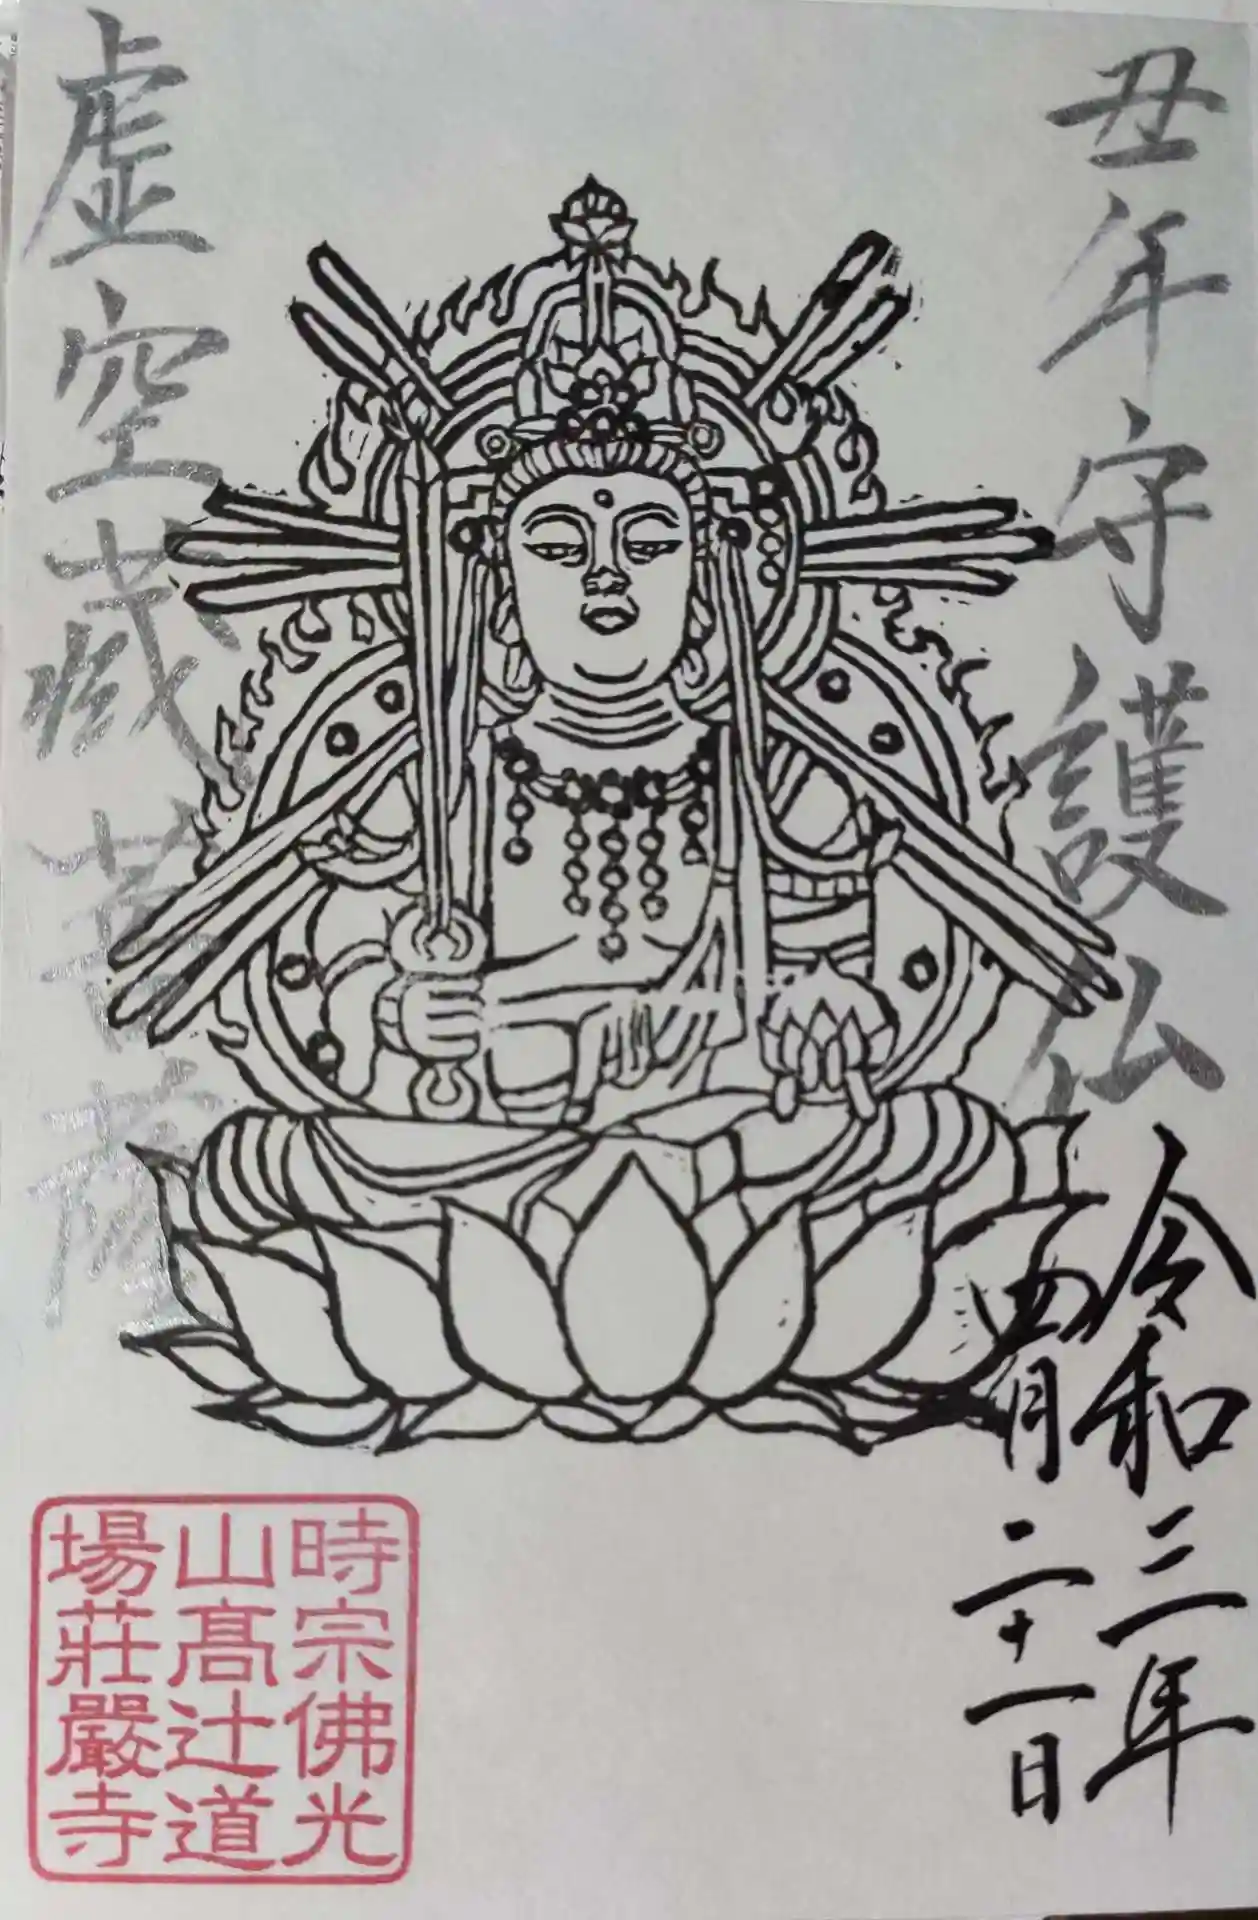 丑年守護仏
令和三年
四月二十一日
虚空蔵菩薩
時宗佛光
山髙辻道
場莊嚴寺